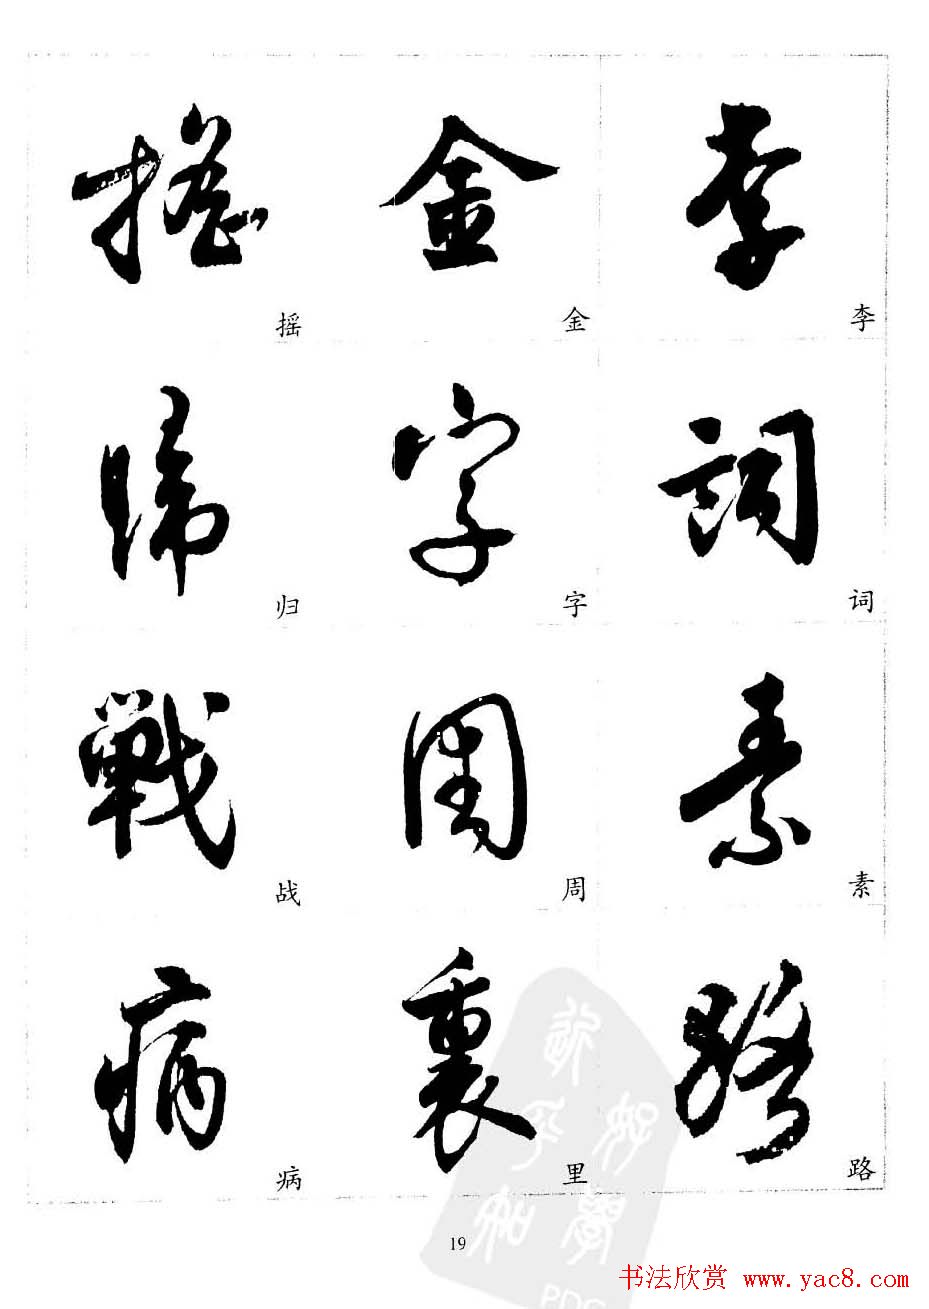 搖 金 李
摇 金 李
歸 字 詞
归 字 词
戰 周 素
战 周 素
病 裏 路
病 里 路
19
书法欣赏 www.yac8.com